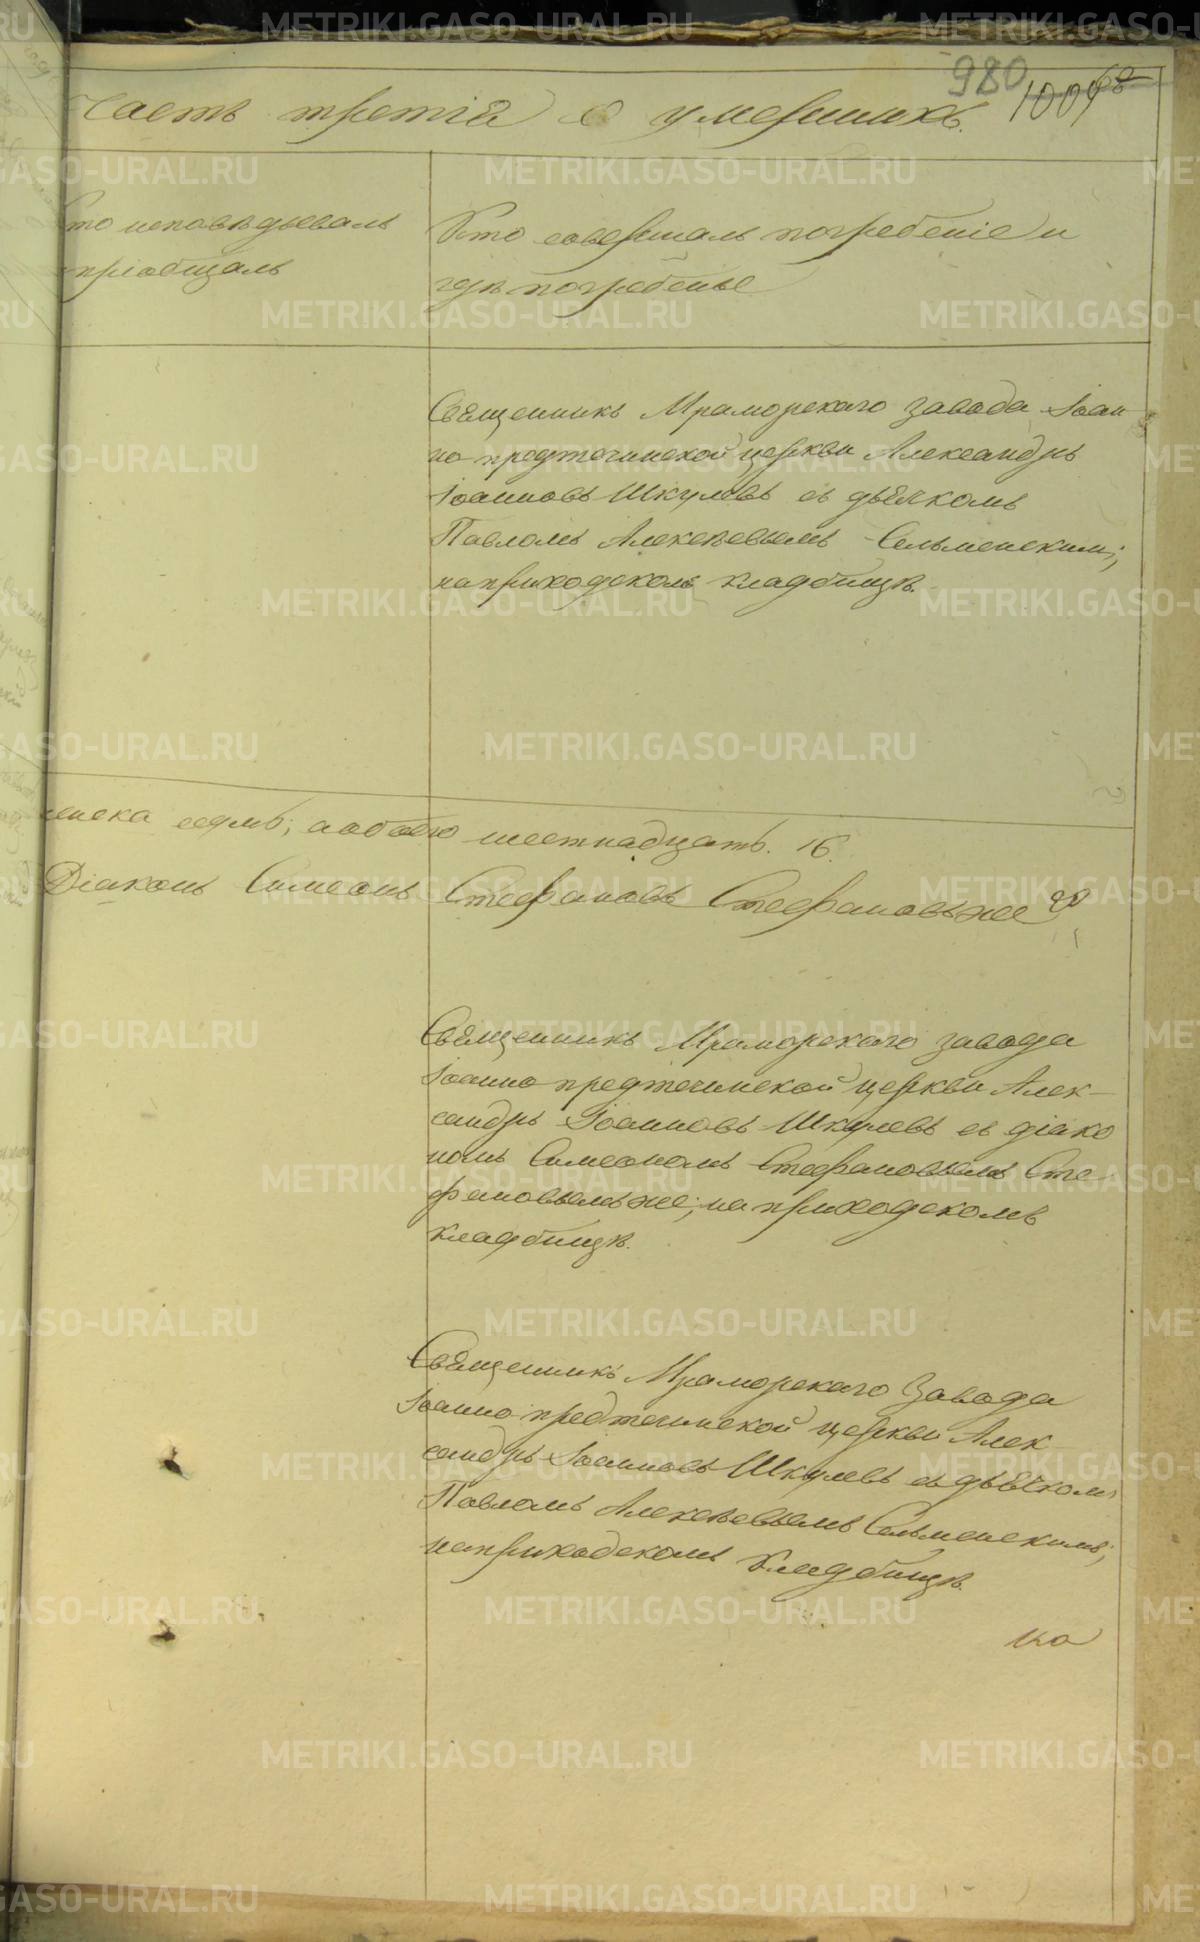 980
1004
68
Часть третія о умершихъ.
Кто исповѣдывалъ
и пріобщалъ
Кто совершалъ погребеніе и
гдѣ погребены
Священникъ Мраморскаго завода Іоан
но предтечинской церкви Александръ
Іоанновъ Шкулевъ съ дьячкомъ
Павломъ Алексѣевымъ Сельменскимъ;
на приходскомъ кладбищѣ.
женска седмь; а обоего шестнадцать. 16.
Діаконъ Симеонъ Стефановъ Стефановъ же
Священникъ Мраморскаго завода
Іоанно предтечинской церкви Алек-
сандръ Іоанновъ Шкулевъ съ діако
номъ Симеономъ Стефановымъ Сте
фановымъ же; на приходскомъ
кладбищѣ.
Священникъ Мраморскаго Завода
Іоанно предтечинской церкви Алек
сандръ Іоанновъ Шкулевъ съ дьячкомъ
Павломъ Алексѣевымъ Сельменскимъ;
на приходскомъ Кладбищѣ.
METRIKI.GASO-URAL.RU